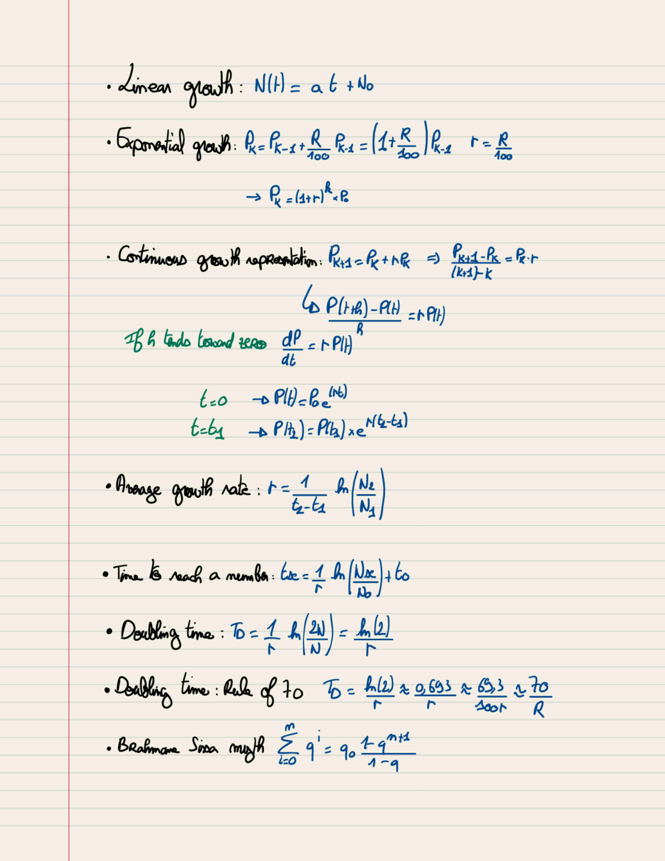 • Linear growth: N(t) = a t + N₀
• Exponential growth: P_K = P_{K-1} + R/100 P_{K-1} = (1 + R/100) P_{K-1} r = R/100
→ P_K = (1+r)^k × P₀
• Continuous growth representation: P_{K+1} = P_K + r P_K ⇒ (P_{K+1} - P_K)/((k+1)-K) = P_K · r
↳ (P(t+h) - P(t))/h = r P(t)
If h tends toward zero dP/dt = r P(t)
t=0 → P(t) = P₀ e^(rt)
t=t₁ → P(t₂) = P(t₁) × e^{r(t₂-t₁)}
• Average growth rate: r = 1/(t₂-t₁) ln(N₂/N₁)
• Time to reach a number: tx = 1/r ln(Nx/N₀) + t₀
• Doubling time: TD = 1/r ln(2N/N) = ln(2)/r
• Doubling time: Rule of 70 TD = ln(2)/r ≈ 0,693/r ≈ 69,3/100r ≈ 70/R
• Brahmane Sissa myth ∑_{i=0}^{n} q^i = q₀ (1-q^{n+1})/(1-q)